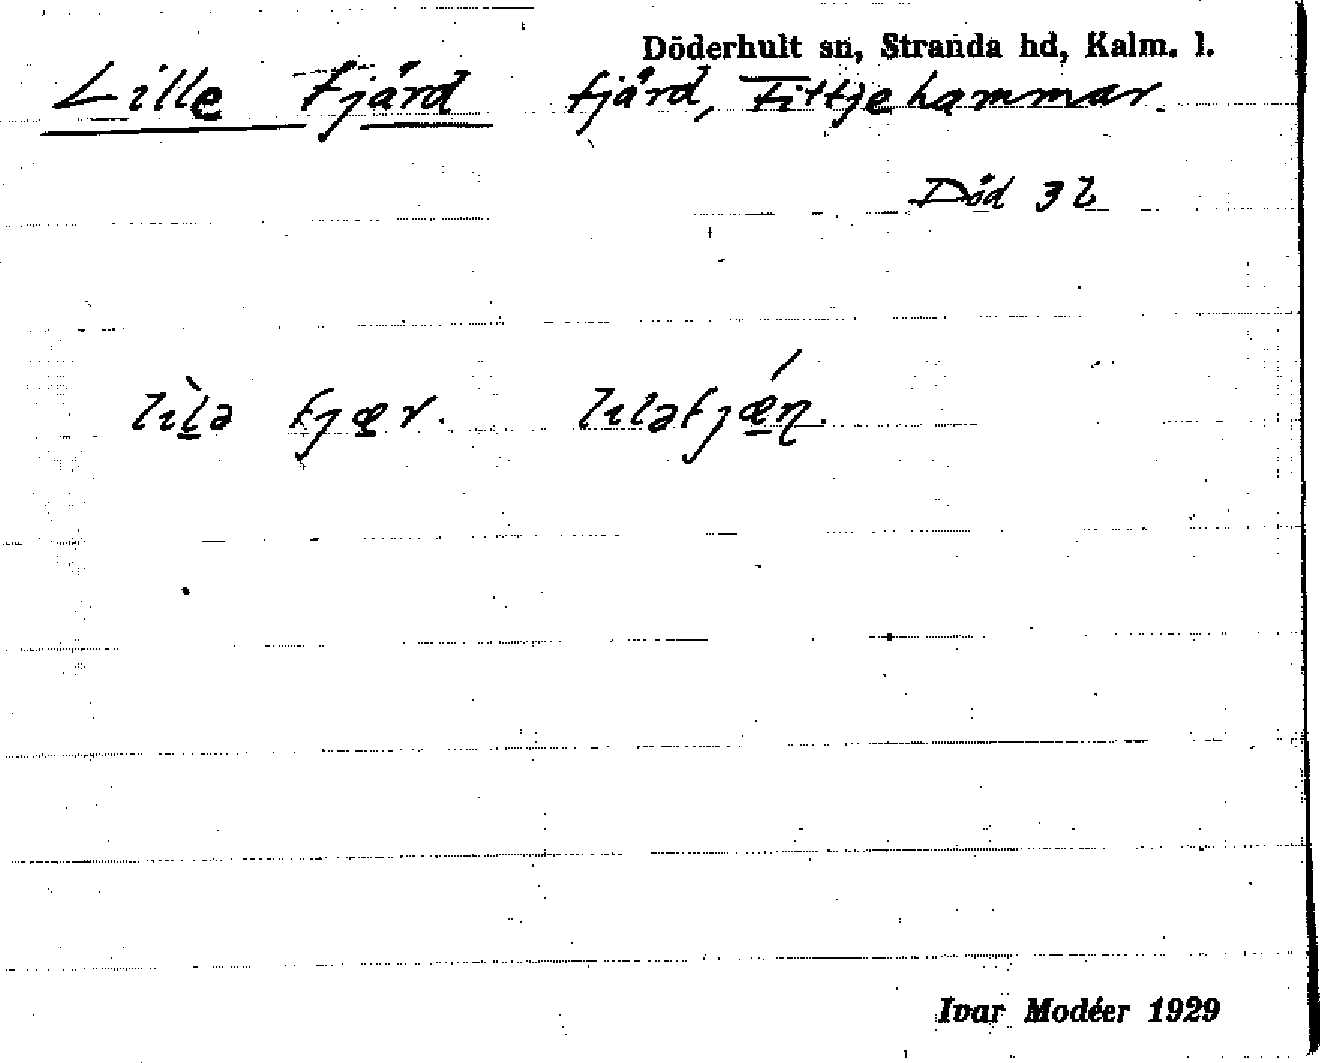 Döderhult sn, Stranda hd, Kalm. l.
Lille Fjärd fjärd, Fittjehammar.
Död 32
lılə fjær. lıləfjæɳ.
Ivar Modéer 1929